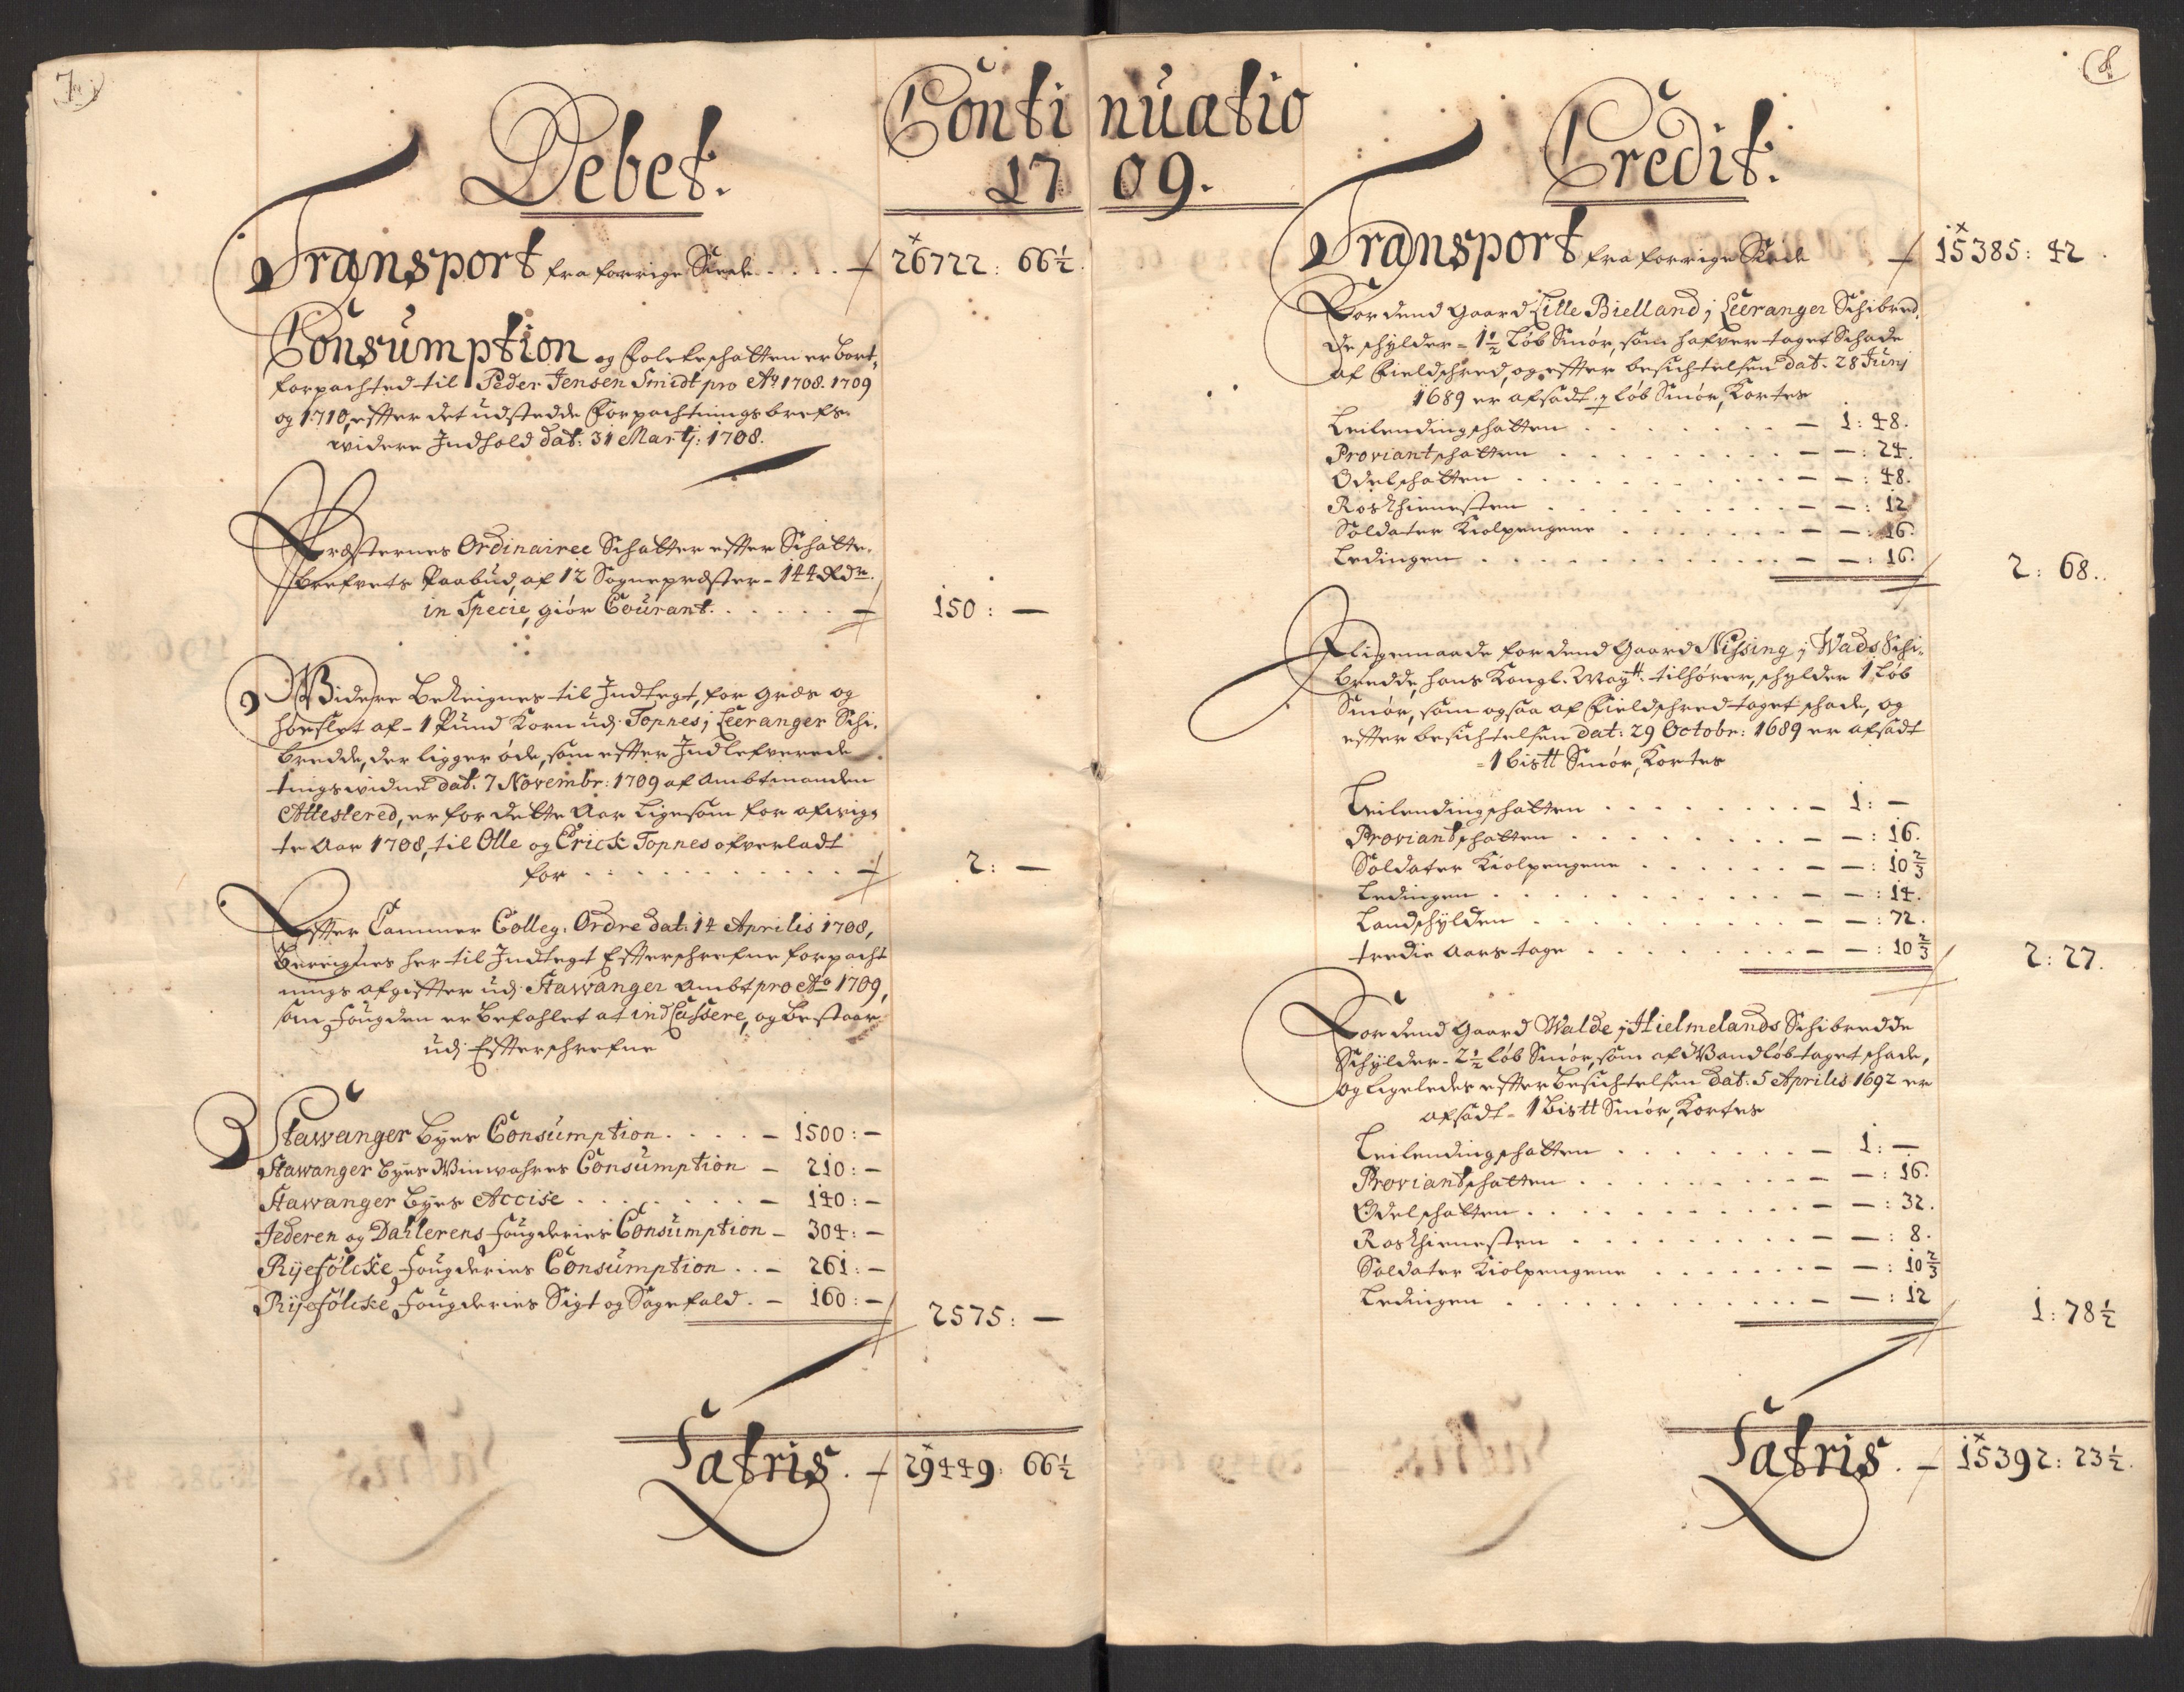 7
Debet.
Conti
17
Transport fra forrige Siide .... 26722: 66½.
Consumption og Folckeschatten er bort,
forpachted til Peder Jensen Smidt pro Ao 1708. 1709
og 1710, effter det udstedde Forpachtnings brefs
widere Indhold dat: 31 Martj: 1708.
Præsternes Ordinairee Schatter effter Schatte,
brefvets Paabud, af 12 Sognepræster - 144 Rdr.
in Specie, giör Courant. ..... 150: —
Widere Bereignes til Indtegt, for græs og
höeslet af - 1 Pund Korn udj Topnes j Leeranger Schi,
bredde, der ligger öde, som effter Indlefverede
tingswidne dat: 7 Novembr: 1709 af Ambtmanden
Attestered, er for dette Aar ligesom for afwig,
te Aar 1708, til Olle og Erick Topnes ofverladt
for .......... 2: —
Effter Cammer Colleg: Ordre dat: 14 Aprilis 1708,
Bereignes her til Indtegt Effterschrefne forpacht
nings afgiffter udj Stawanger Ambt pro Ao 1709,
som Fougden er befahlet at indCassere, og bestaar
udj Effterschrefne
Stawanger Byes Consumption .... – 1500: –
Stawanger Byes Winwahres Consumption – 210: –
Stawanger Byes Accise ....... – 140: –
Jederen og Dahlerens Fougderies Consumption – 304: –
Ryefölcke Fougderies Consumption .. – 261: –
Ryefölcke Fougderies Sigt og Sagefald . – 160: –
2575: —
Latris. 29449: 66½
8
nuatio
09.
Credit.
Transport fra forrige Siide 15385: 42.
For dend Gaard Lille Bielland j Leeranger Schibred,
de schylder = 1½ Løb Smör, som hafver taget Schade
af Fieldschred, og effter besichtelsen dat: 28 Junj
1689 er afsadt ½ löb Smör, Kortes
Leilendingschatten ........ – 1: 48.
Proviantschatten ......... – –: 24.
Odelschatten ........... – –: 48.
Rosthienesten .......... – –: 12
Soldater Kiolpengene ....... – –: 16.
Ledingen ............ – –: 16.
2: 68..
J ligemaade for dend Gaard Nissing j Wads Schi,
bredde, hans Kongl. Maytt. tilhörer, schylder 1 Löb
Smör, som ogsaa af Fieldschred taget schade, og
effter besichtelsen dat: 29 Octobr: 1689 er afsadt
- 1 bistt Smör, Kortes
Leilendingschatten ....... – 1: –
Proviantschatten ........ – –: 16.
Soldater Kiolpengene ...... – –: 10⅔
Ledingen ........... – –: 14.
Landschylden ......... – –: 72.
tredie Aars tage ........ – –: 10⅔
2: 27.
For dend Gaard Walde j Hielmelands Schibredde
Schylder - 2½ Löb Smör, som af Wandlöb taget schade,
og ligeledes effter Besichtelsen dat: 5 Aprilis 1692 er
afsadt - 1 bistt Smör, Kortes
Leilendingschatten ....... – 1: –
Proviantschatten ........ – –: 16.
Odelschatten .......... – –: 32.
Rosthienesten ......... – –: 8.
Soldater Kiolpengene ...... – –: 10⅔
Ledingen ........... – –: 12
1: 78½
Latris. 15392: 23½.